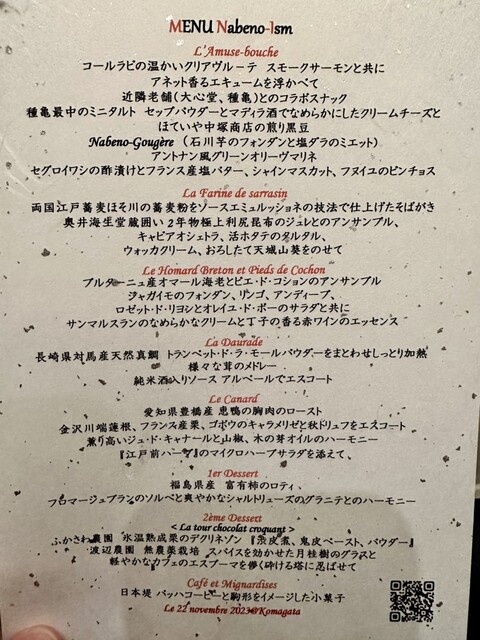 MENU Nabeno-Ism
L'Amuse-bouche
コールラビの温かいクリアヴルーテ スモークサーモンと共に
アネット香るエキュームを浮かべて
近隣老舗(大心堂、種亀)とのコラボスナック
種亀最中のミニタルト セップパウダーとマディラ酒でなめらかにしたクリームチーズと
ほていや中塚商店の煎り黒豆
Nabeno-Gougère (石川芋のフォンダンと塩ダラのミエット)
アントナン風グリーンオリーヴマリネ
セグロイワシの酢漬けとフランス産塩バター、シャインマスカット、フヌイユのピンチョス
La Farine de sarrasin
両国江戸蕎麦ほそ川の蕎麦粉をソースエミュルッショネの技法で仕上げたそばがき
奥井海生堂蔵囲い2年物極上利尻昆布のジュレとのアンサンブル、
キャビアオシェトラ、活ホタテのタルタル、
ウォッカクリーム、おろしたて天城山葵をのせて
Le Homard Breton et Pieds de Cochon
ブルターニュ産オマール海老とピエ・ド・コションのアンサンブル
ジャガイモのフォンダン、リンゴ、アンディーブ、
ロゼット・ド・リヨンとオレイユ・ド・ポーのサラダと共に
サンマルスランのなめらかなクリームと丁子の香る赤ワインのエッセンス
La Daurade
長崎県対馬産天然真鯛 トランペット・ド・ラ・モールパウダーをまとわせしっとり加熱
様々な茸のメドレー
純米酒入りソース アルベールでエスコート
Le Canard
愛知県豊橋産 忠鴨の胸肉のロースト
金沢川端蓮根、フランス産栗、ゴボウのキャラメリゼと秋トリュフをエスコート
薫り高いジュ・ド・キャナールと山椒、木の芽オイルのハーモニー
『江戸前ハーブ』のマイクロハーブサラダを添えて、
1er Dessert
福島県産 富有柿のロティ、
フロマージュブランのソルベと爽やかなシャルトリューズのグラニテとのハーモニー
2ème Dessert
< La tour chocolat croquant >
ふかさわ農園 氷温熟成栗のデクリネゾン 『渋皮煮、鬼皮ペースト、パウダー』
渡辺農園 無農薬栽培 スパイスを効かせた月桂樹のグラスと
軽やかなカフェのエスプーマを儚く砕ける塔に忍ばせて
Café et Mignardises
日本堤 バッハコーヒーと駒形をイメージした小菓子
Le 22 novembre 2023@Komagata